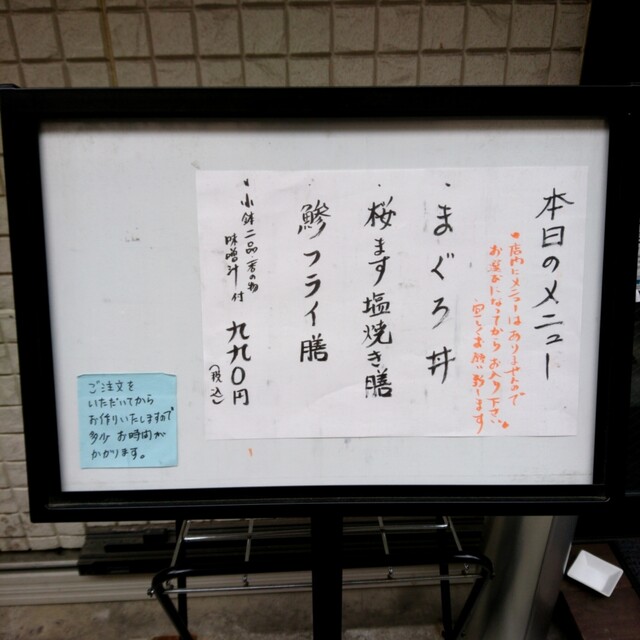 本日のメニュー
店内にメニューはありませんので
お決まりになってからお入り下さい
宜しくお願い致します
・まぐろ丼
・桜ます塩焼き膳
・鯵フライ膳
・小鉢二品 香の物
味噌汁 付
九九〇円
(税込)
ご注文を
いただいてから
お作りいたしますので
多少 お時間が
かかります。